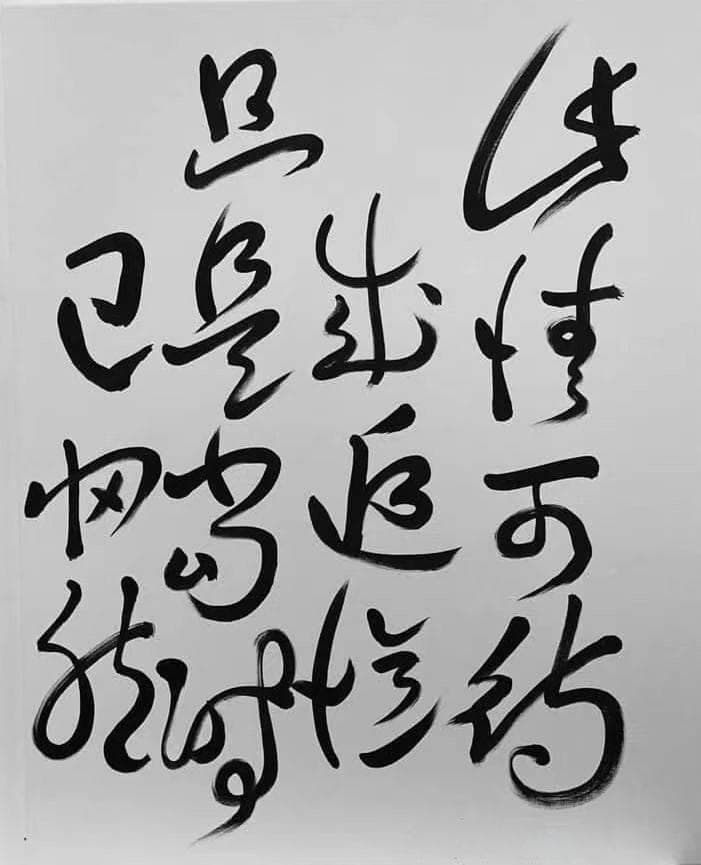 此情可待
成追忆
只是当时
已惘然